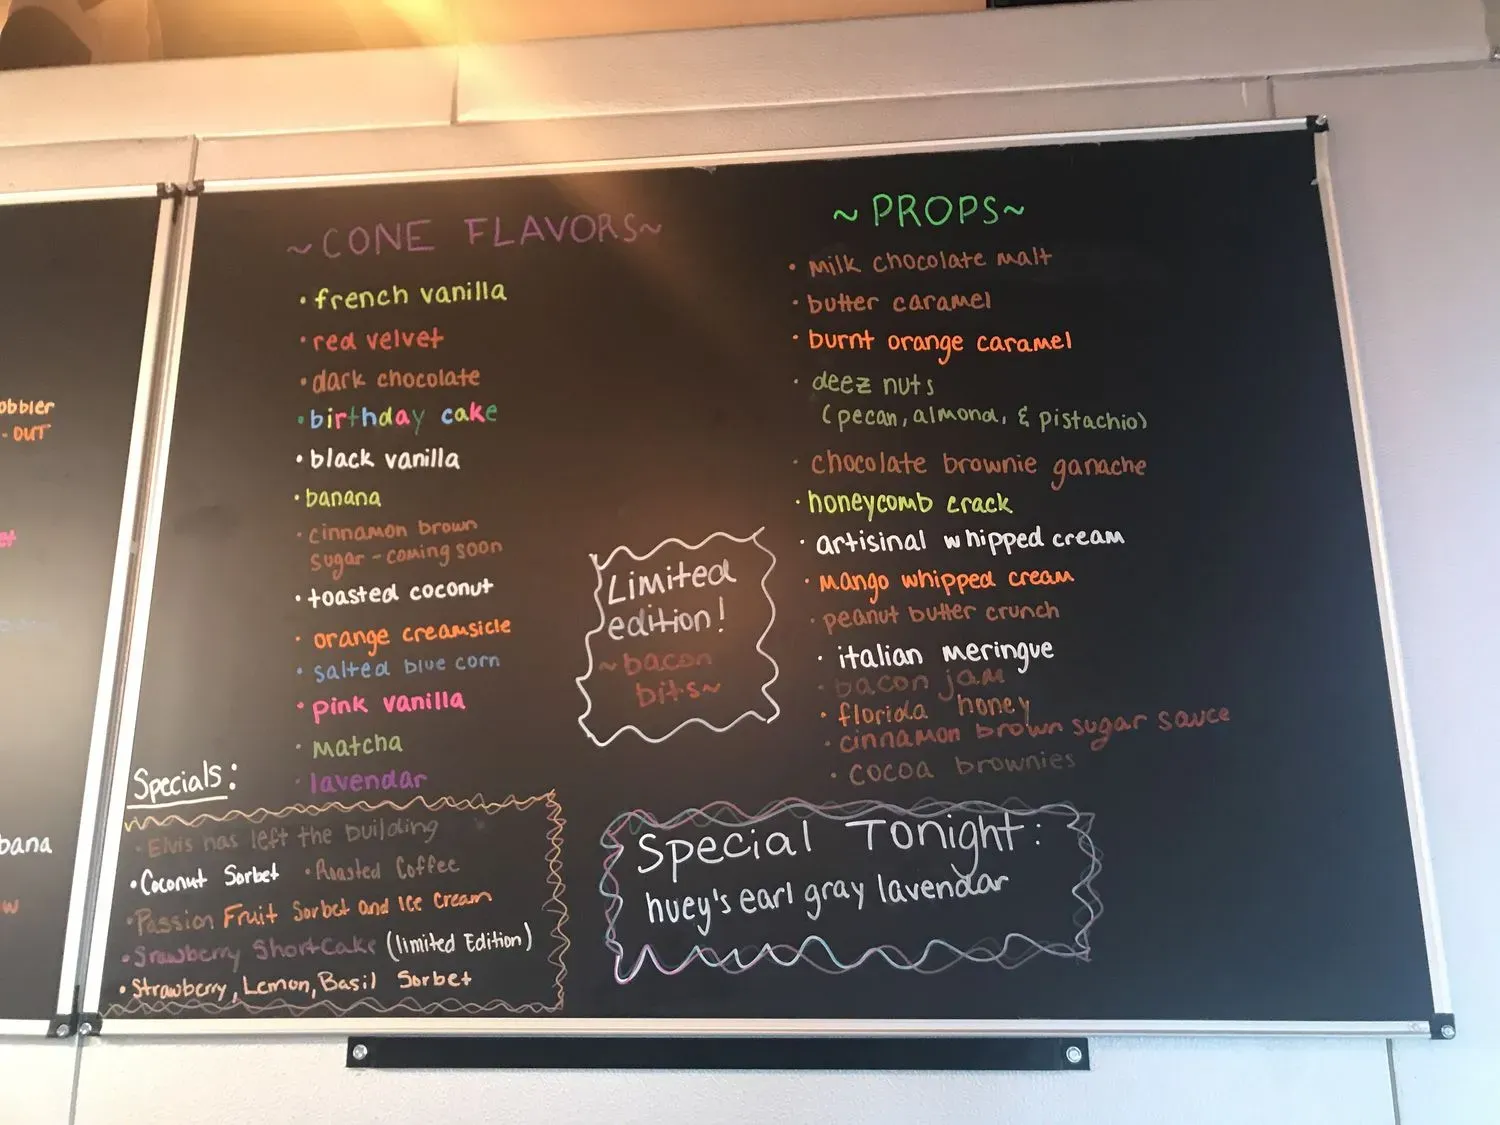 obbler
- OUT
et
bana
w
~CONE FLAVORS~
• french vanilla
• red velvet
• dark chocolate
• birthday cake
• black vanilla
• banana
• cinnamon brown
sugar - coming soon
• toasted coconut
• orange creamsicle
• salted blue corn
• pink vanilla
• matcha
• lavendar
Specials:
• Elvis has left the building
• Coconut Sorbet • Roasted Coffee
• Passion Fruit Sorbet and Ice Cream
• Srawberry Shortcake (limited Edition)
• Strawberry, Lemon, Basil Sorbet
Limited
edition!
~bacon
bits~
~PROPS~
• milk chocolate malt
• butter caramel
• burnt orange caramel
• deez nuts
(pecan, almond, & pistachio)
• chocolate brownie ganache
• honeycomb crack
• artisinal whipped cream
• mango whipped cream
• peanut butter crunch
• italian meringue
• bacon jam
• florida honey
• cinnamon brown sugar sauce
• cocoa brownies
Special Tonight:
huey's earl gray lavendar